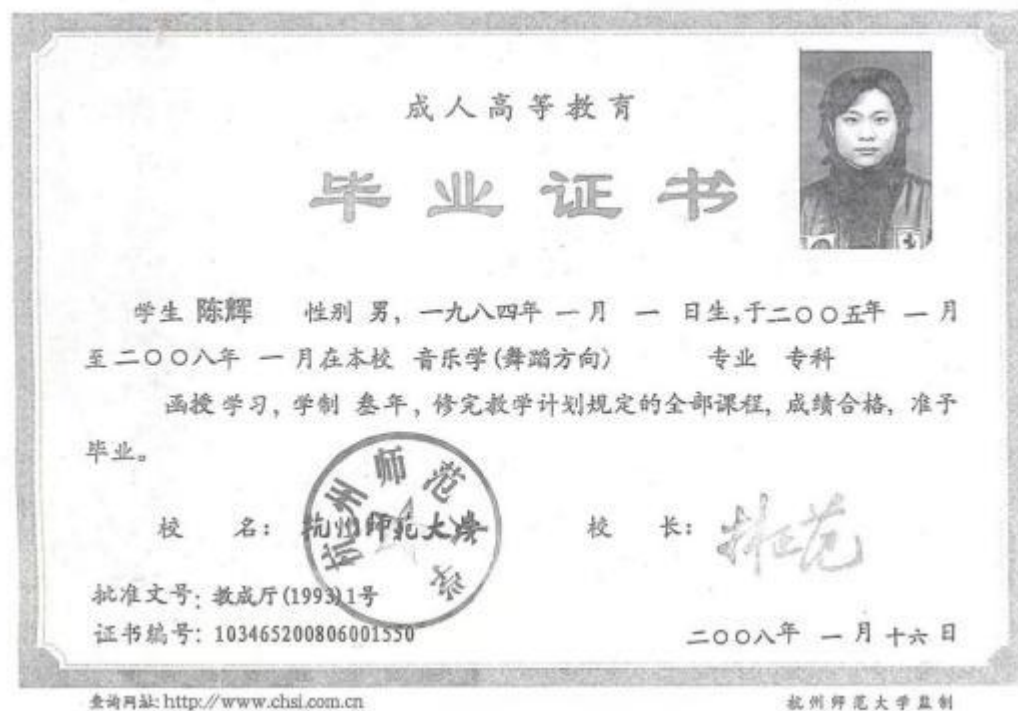 成人高等教育
毕业证书
学生 陈辉 性别 男, 一九八四年 一 月 一 日生,于二〇〇五年 一 月
至二〇〇八年 一 月在本校 音乐学(舞蹈方向) 专业 专科
函授 学习, 学制 叁年, 修完教学计划规定的全部课程, 成绩合格, 准予
毕业。
校 名: 杭州师范大学 校 长:
批准文号: 教成厅(1993)1号
证书编号: 103465200806001550 二〇〇八年 一 月 十六 日
查询网址: http://www.chsi.com.cn 杭州师范大学监制